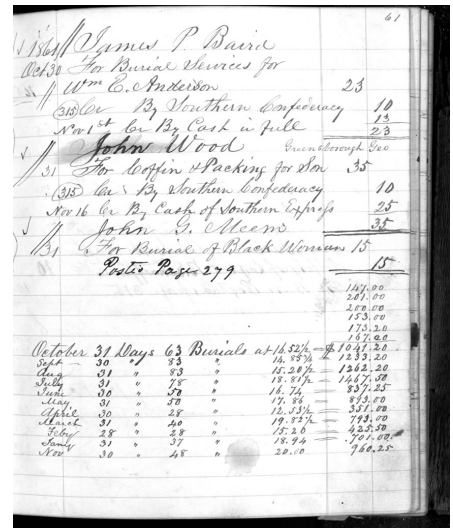 61
1861 // James P. Baird
Oct 30 For Burial Services for
// Wm E. Anderson 23
(315) Cr By Southern Confederacy 10
Nov 1st Cr By Cash in full 13
23
// John Wood Greensborough Geo
31 For Coffin & Packing for Son 35
(315) Cr By Southern Confederacy 10
Nov 16 Cr By Cash of Southern Express 25
35
// John G. Meem
31 For Burial of Black Woman 15
Posted Page 279 15
147.00
201.00
200.00
153.00
173.20
167.00
October 31 Days 63 Burials at 16.52½ = $1041.20
Sept 30 " 83 " 14.85¾ = 1233.20
Aug 31 " 83 " 15.20½ = 1262.20
July 31 " 78 " 18.81½ = 1467.50
June 30 " 50 " 16.74 = 837.25
May 31 " 50 " 17.86 = 893.00
April 30 " 28 " 12.53½ = 351.00
March 31 " 40 " 19.82½ = 793.00
Feby 28 " 28 " 15.20 = 425.50
Jany 31 " 37 " 18.94 = 701.00
Nov 30 " 48 " 20.00 960.25